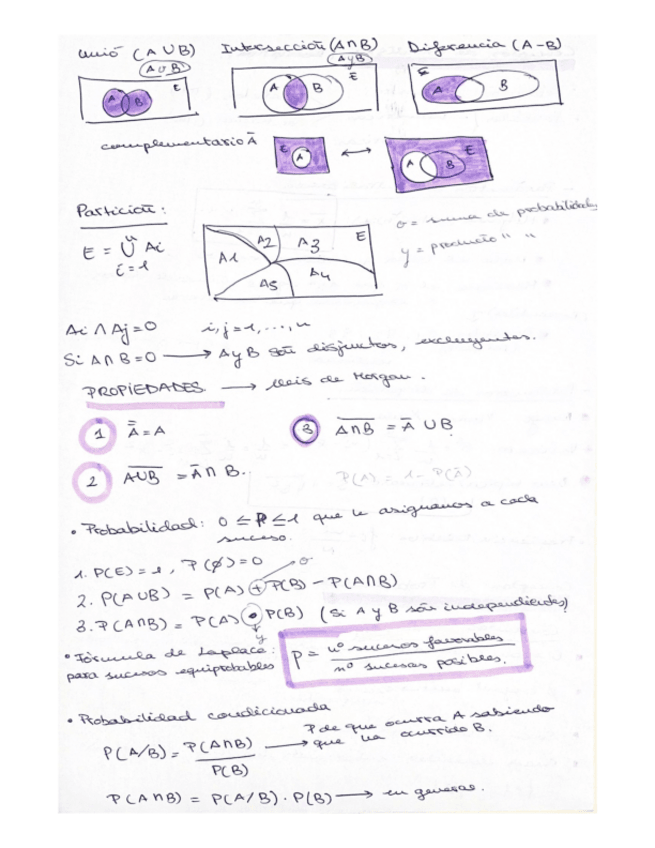 Unió (A ∪ B) Intersección (A∩B) Diferencia (A-B)
A o B A y B
A B E A B E E A B
complementario Ā E A ↔ A B E
Partición:
o = suma de probabilidades
y = producto " "
E = ∪ Ai
n
i=1
A1 A2 A3 E
A5 A4
Ai ∩ Aj=0 i,j=1,...,n
Si A∩B=0 → A y B són disjuntos, excluyentes.
PROPIEDADES → lleis de Morgan.
1 A̿ = A
3 A∩B̅ = Ā ∪ B
2 A∪B̅ = Ā ∩ B.
P(A) = 1 - P(Ā)
• Probabilidad: 0 ≤ P ≤ 1 que le asignamos a cada
suceso.
1. P(E) = 1, P(∅)=0 o
2. P(A∪B) = P(A) + P(B) - P(A∩B)
3. P(A∩B) = P(A) • P(B) (Si A y B són independientes)
y
• Fórmula de Laplace:
para sucesos equiprobables
P = nº sucesos favorables
nº sucesos posibles.
• Probabilidad condicionada
P(A/B) = P(A∩B) → P de que ocurra A sabiendo
que ha ocurrido B.
P(B)
P(A∩B) = P(A/B) · P(B) → en general.